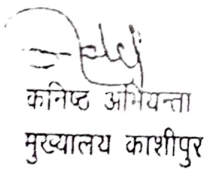 कनिष्ठ अभियन्ता
मुख्यालय काशीपुर